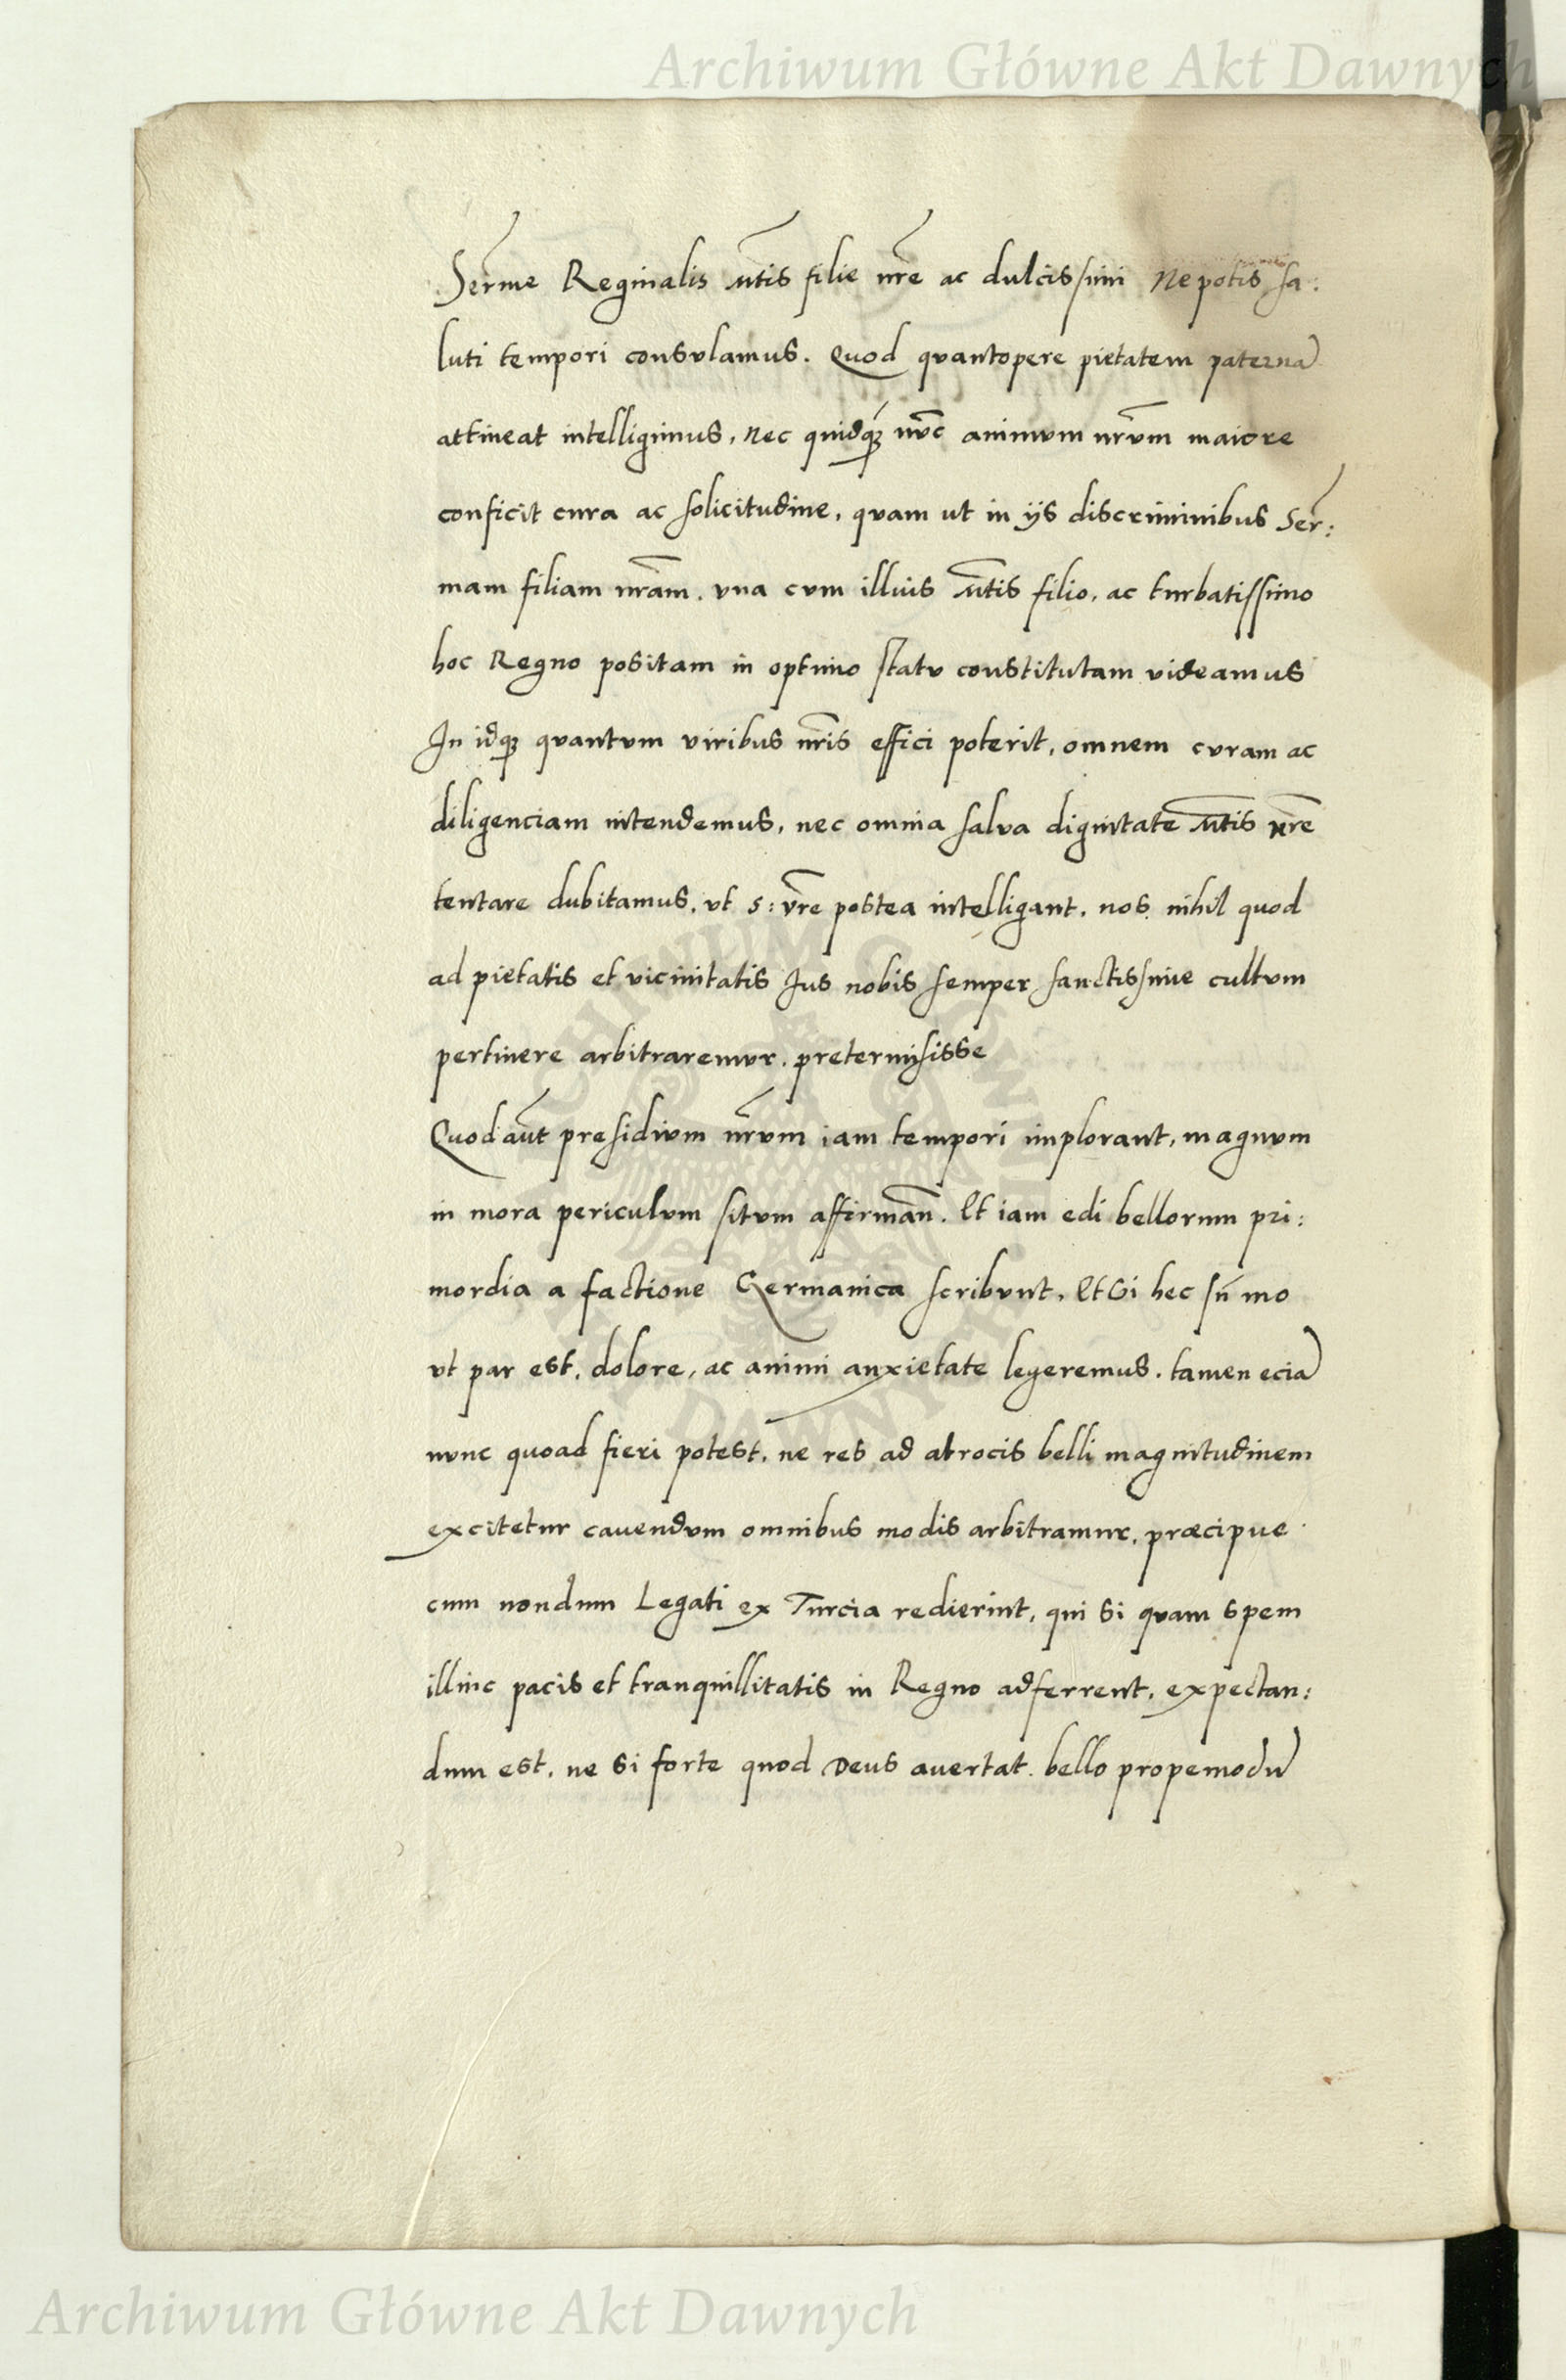 Archiwum Główne Akt Dawnych
Serme Reginalis Mtis filie nre ac dulcissimi Nepotis sa:
luti tempori consulamus. Quod quantopere pietatem paternā
attineat intelligimus, nec quidq́ȝ nūc animum nrūm maiore
conficit cura ac solicitudine, quam ut in ijs discriminibus Ser:
mam filiam nrām, una cum illius Mtis filio, ac turbatissimo
hoc Regno positam in optimo statu constitutam videamus
In idqȝ quantum viribus nrīs effici poterit, omnem curam ac
diligenciam intendemus, nec omnia salva dignitate Mtis nrē
tentare dubitamus, ut S: vrē postea intelligant, nos nihil quod
ad pietatis et vicinitatis Jus nobis semper sanctissime cultum
pertinere arbitraremur, pretermisisse
Quod aūt presidium nrūm iam tempori implorant, magnum
in mora periculum situm affirmān. Et iam edi bellorum pri:
mordia a factione Germanica scribunt, Etsi hec sn̄ mo
ut par est, dolore, ac animi anxietate legeremus, tamen eciā
nunc quoad fieri potest, ne res ad atrocis belli magnitudinem
excitetur cauendum omnibus modis arbitramur, præcipue
cum nondum Legati ex Turcia redierint, qui si quam spem
illinc pacis et tranquillitatis in Regno adferrent, expectan:
dum est, ne si forte quod Deus auertat. bello propemodū
Archiwum Główne Akt Dawnych